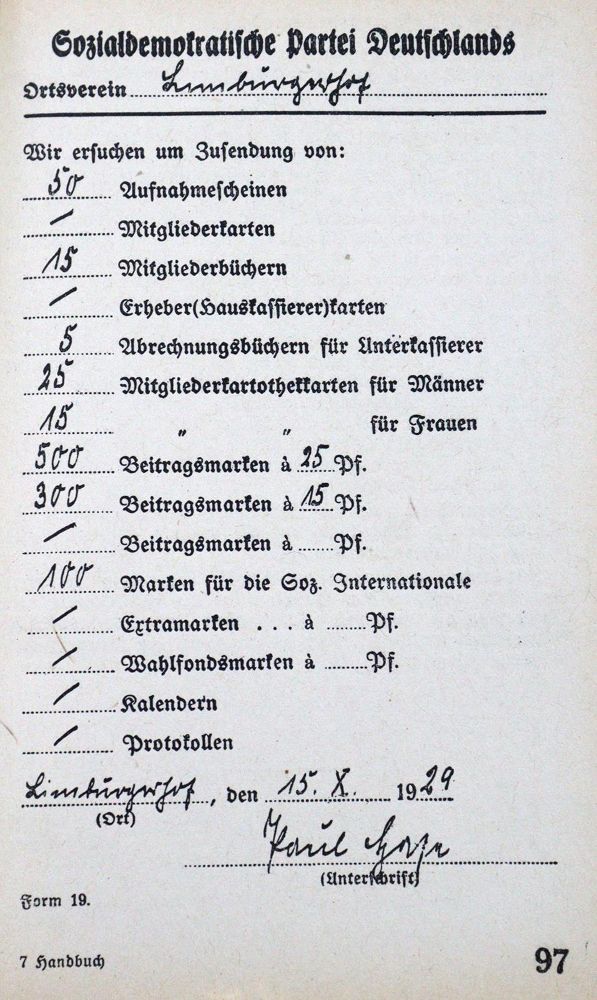 Sozialdemokratische Partei Deutschlands
Ortsverein Limburgerhof
Wir ersuchen um Zusendung von:
50 Aufnahmescheinen
/ Mitgliederkarten
15 Mitgliederbüchern
/ Erheber(Hauskassierer)karten
5 Abrechnungsbüchern für Unterkassierer
25 Mitgliederkartothekkarten für Männer
15 " " für Frauen
500 Beitragsmarken à 25 Pf.
300 Beitragsmarken à 15 Pf.
/ Beitragsmarken à ...... Pf.
100 Marken für die Soz. Internationale
/ Extramarken . . . à ...... Pf.
/ Wahlfondsmarken à ...... Pf.
/ Kalendern
/ Protokollen
Limburgerhof, den 15. X. 1929
(Ort)
Paul Hase
(Unterschrift)
Form 19.
7 Handbuch
97